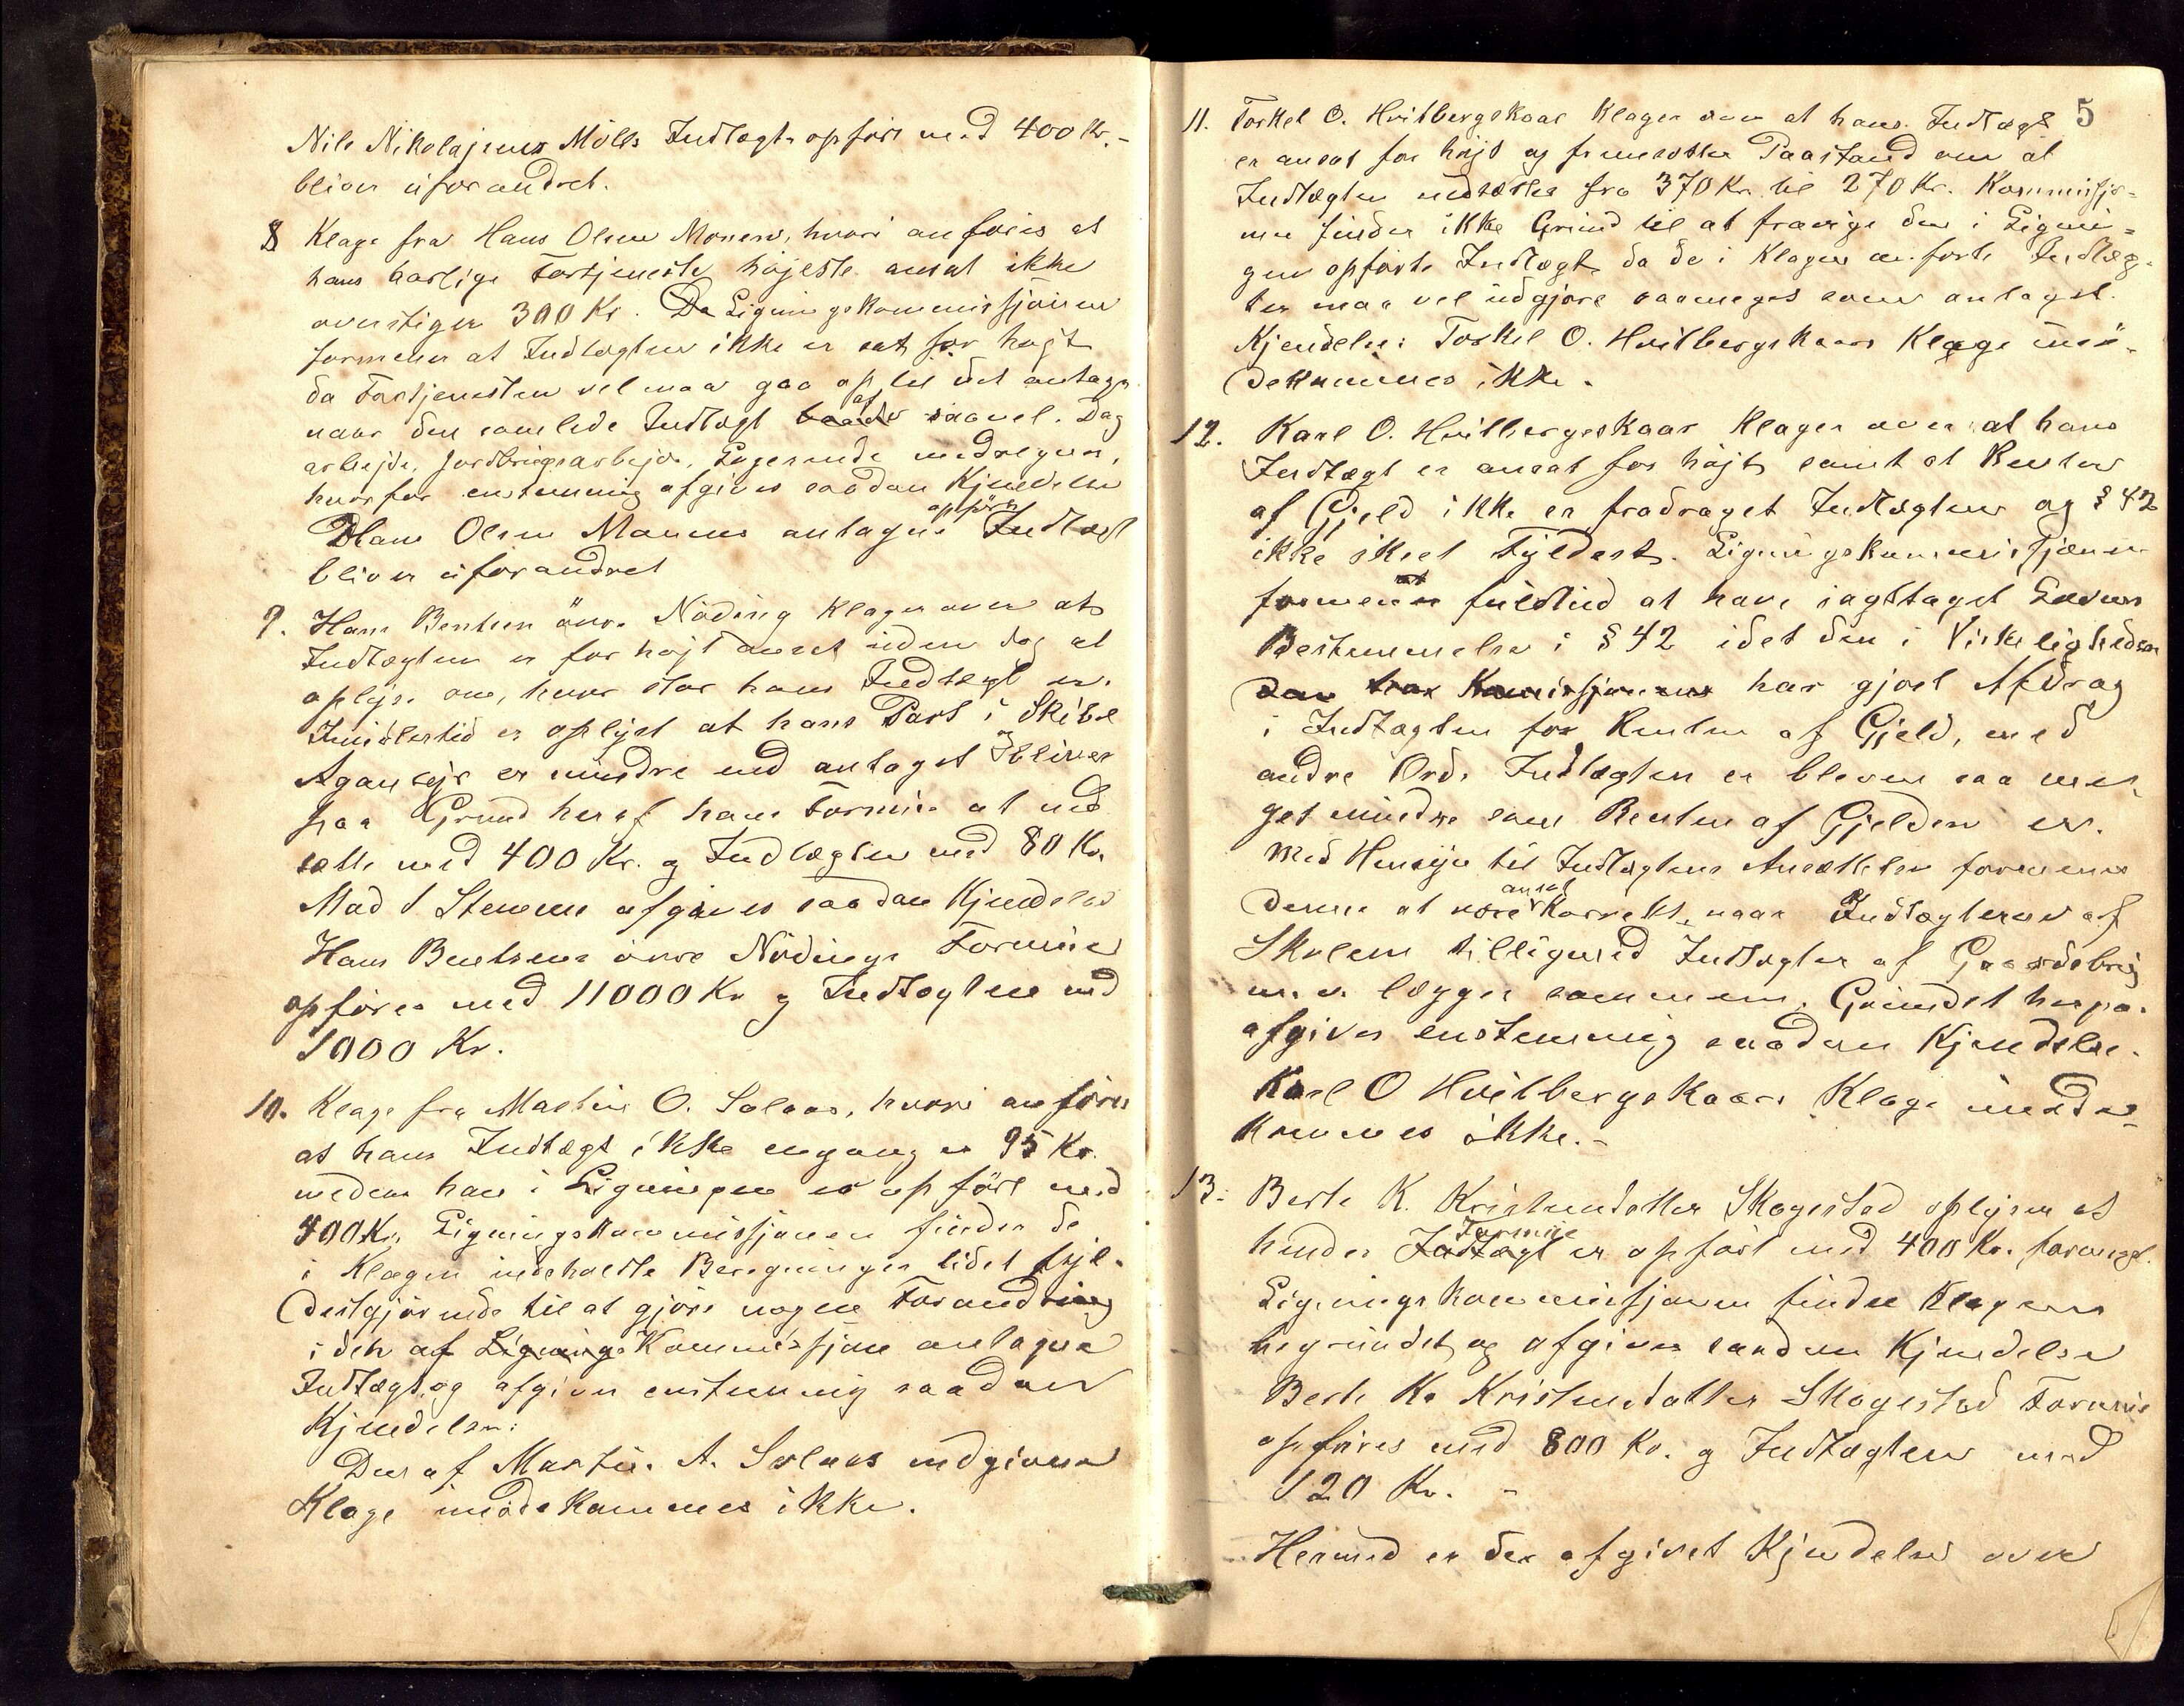 Nils Nikolajsens Mölls Indtægt opfört med 400 Kr.-
bliver uforandret.
8 Klage fra Hans Olsen Monen, hvori anföres at
hans aarlige Fortjeneste höjeste ansat ikke
overstiger 300 Kr. Da Ligningskommissjonen
formener at Indtægten ikke er sat for højt
da Fortjenesten vel maa gaa op til det antagne
naar den samlede Indtægt af saavel Dag
arbejde, Jordbrugsarbejde, medregnes,
hvorfor enstemmig afgives saadan Kjendelse
opförte
Hans Olsen Monens antagne Indtægt
bliver uforandret
9. Hans Bentsen övre Nöding klager over at
Indtægten er for højt ansat uden dog at
oplyse om, hvor stor hans Indtægt er.
Imidlertid er oplyst at hans Part i Skibet
Aganeze er mindre end antaget og bliver
paa Grund heraf hans Formue at ned
sætte med 400 Kr. og Indtægten med 80 Kr.
Mod 1 Stemme afgives saadan Kjendelse
Hans Bentsens övre Nödings Formue
opföres med 11000 Kr og Indtægten med
1000 Kr.
10. Klage fra Martin O. Solaas, hvori anföres
at hans Indtægt ikke engang er 95 Kr.
medens han i Ligningen er opfört med
400 Kr. Ligningskommissjonen finder de
i Klagen indeholdte Beregninger lidet fyl-
destgjörende til at gjöre nogen Forandring
i den af Lignings Kommissjon antagne
Indtægt og afgiver enstemmig saadan
Kjendelse:
Den af Martin A. Solaas indgivne
Klage imödekommes ikke.
5
11. Torkel O. Hvitbergskaar klager over at hans Indtægt
er ansat for højt og fremsætter Paastand om at
Indtægten nedsættes fra 370 Kr. til 270 Kr. Kommissjo-
nen finder ikke Grund til at fravige den i Ligni-
gen opförte Indtægt, da de i Klagen anförte Indtæg-
ter maa vel udgjöre saameget som antaget.
Kjendelse: Torkel O. Hvitbergskaars Klage imö-
dekommes ikke.
12. Karl O. Hvitbergskaar klager over at hans
Indtægt er ansat for højt samt at Renten
af Gjeld ikke er fradraget Indtægten og § 42
ikke skeet Fyldest. Ligningskommissjonen
formener fuldtud at have iagttaget Lovens
Bestemmelse i § 42 idet den i Virkeligheden
den har Kommissjonen har gjort Afdrag
i Indtægten for Renten af Gjeld, med
andre Ord. Indtægten er bleven saa me-
get mindre som Renten af Gjelden er.
Med Hensyn til Indtægtens Ansættelse formenes
ansat
denne at være korrekt, naar Indtægterne af
Skolen tilligemed Indtægter af Gaardsbrug
m. v. lægges sammen. Grundet herpaa
afgives enstemmig saadan Kjendelse.
Karl O Hvitbergskaars Klage imöde-
kommes ikke.-
13. Berte K. Kristensdatter Skogestad oplyser at
Formue
hendes Indtægt er opfört med 400 Kr. formeget.
Ligningskommissjonen finder Klagen
begrundet og afgiver saadan Kjendelse
Berte K. Kristensdatter Skogestad Formue
opföres med 800 Kr. og Indtægten med
120 Kr. -
Hermed er der afgivet Kjendelse over